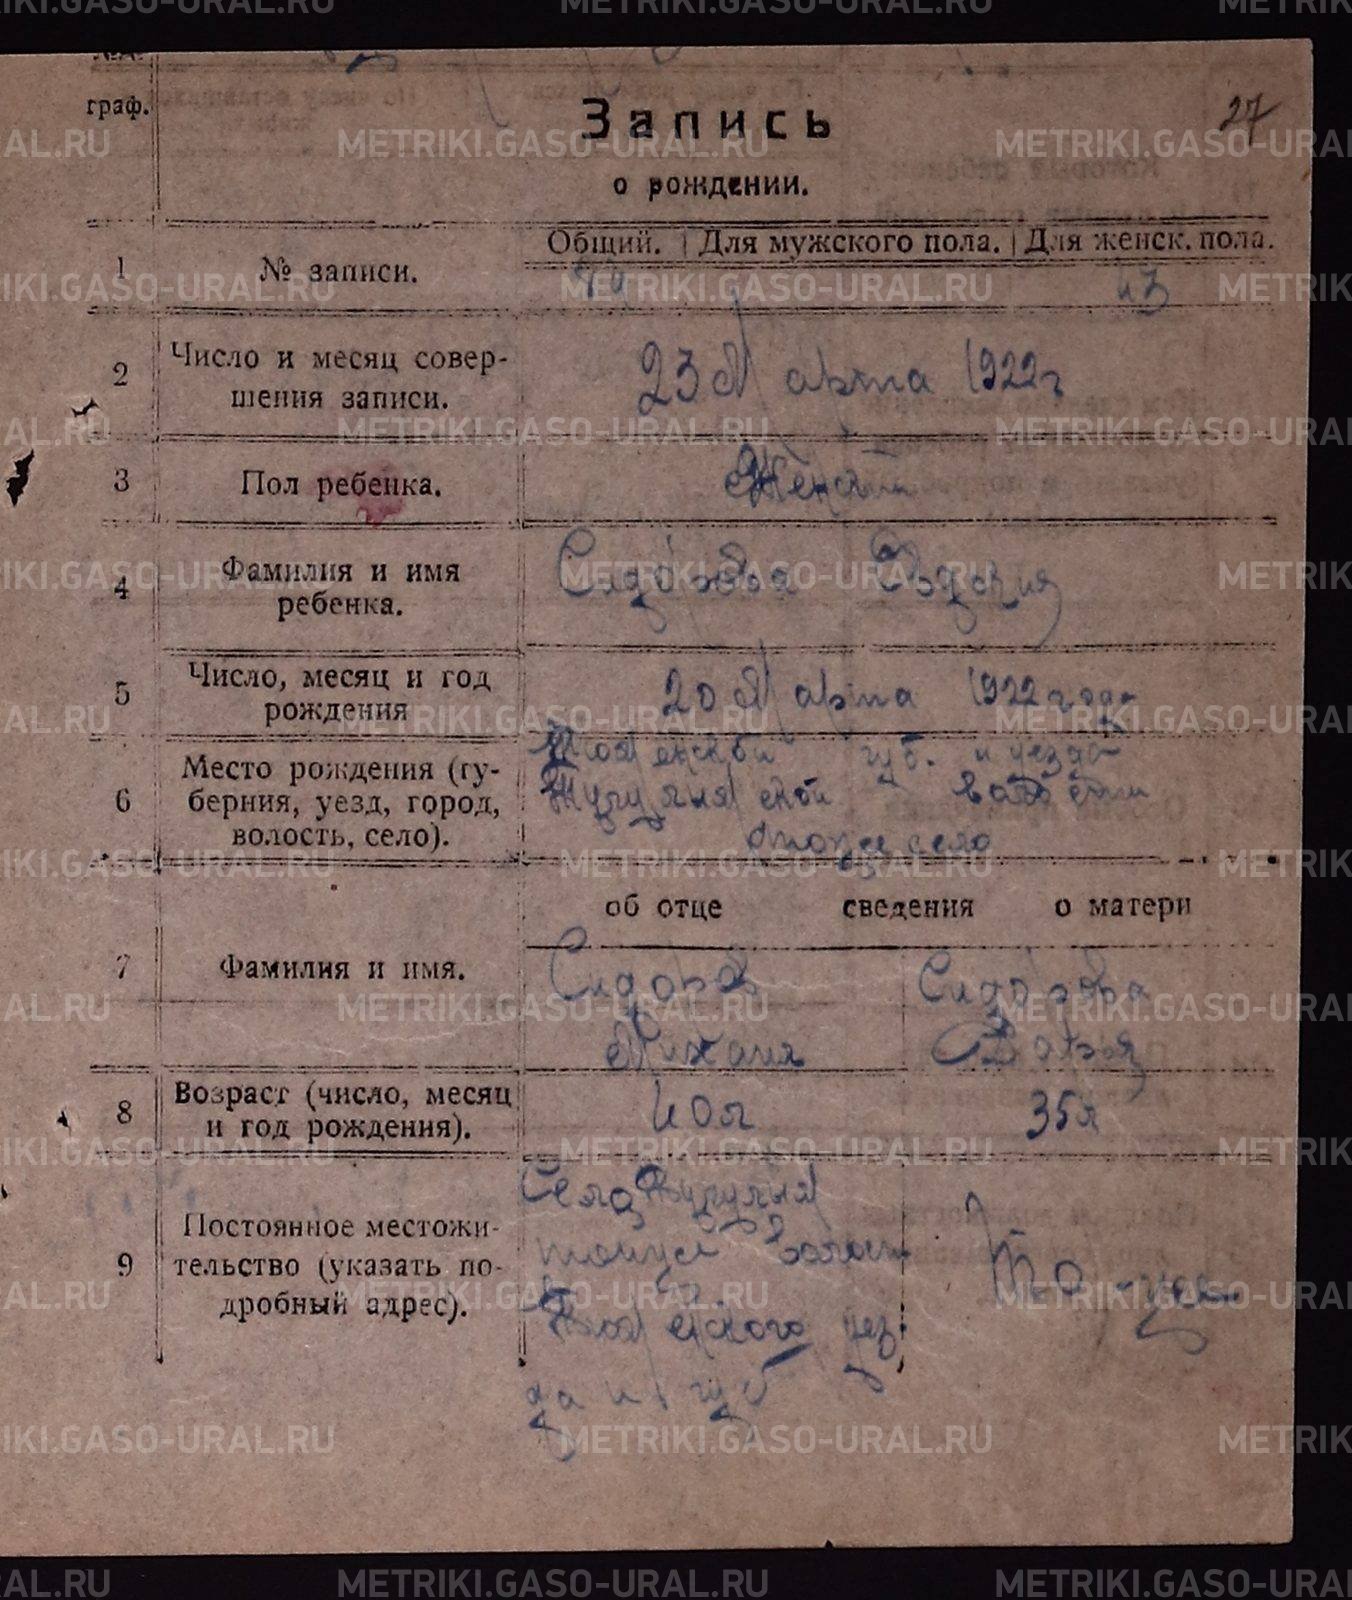 граф.
Запись
27
о рождении.
Общий. | Для мужского пола. | Для женск. пола.
1 № записи. 43
2 Число и месяц совер-
шения записи.
23 Марта 1922 г
3 Пол ребенка. Женский
4 Фамилия и имя
ребенка.
Сидорова
5 Число, месяц и год
рождения
20 Марта 1922 года
6 Место рождения (гу-
берния, уезд, город,
волость, село).
Тюменской губ. и уезда
волости
тоже село
об отце сведения о матери
7 Фамилия и имя.
Сидоров Сидорова
Михаил Дарья
8 Возраст (число, месяц
и год рождения).
40 л 35 л
9 Постоянное местожи-
тельство (указать по-
дробный адрес).
Село
тоиуся волости
Тюменского уез
да и губ
То-же
METRIKI.GASO-URAL.RU